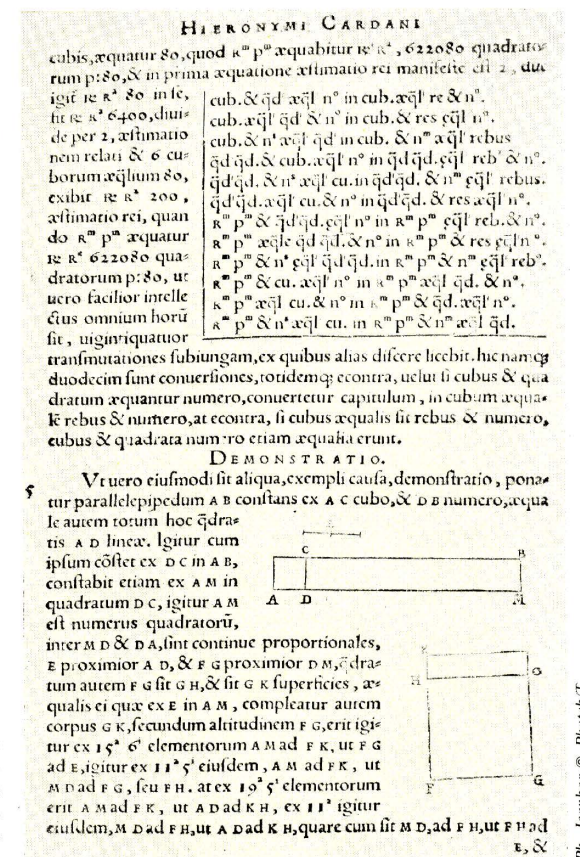 HIERONYMI CARDANI
cubis, æquatur 80, quod ʀᵐ pᵐ æquabitur ℞ ʀᵃ, 622080 quadrato-
rum p: 80, & in prima æquatione æstimatio rei manifeste est 2, duc
igit̃ ℞ ʀᵃ 80 in se,
fit ℞ ʀᵃ 6400, diui-
de per 2, æstimatio
nem relati & 6 cu-
borum æq̃lium 80,
exibit ℞ ʀᵃ 200,
æstimatio rei, quan
do ʀᵐ pᵐ æquatur
℞ ʀᵃ 622080 qua-
dratorum p: 80, ut
uero facilior intelle
ctus omnium horũ
sit, uigintiquatuor
cub. & q̃d' æq̃l' nᵒ in cub. æq̃l' re & nᵒ.
cub. æq̃l' q̃d' & nᵒ in cub. & res ęq̃l' nᵒ.
cub. & nˢ æq̃l' q̃d' in cub. & nᵐ æq̃l' rebus
q̃d q̃d. & cub. æq̃l' nᵒ in q̃d q̃d. ęq̃l' rebˢ & nᵒ.
q̃d'q̃d. & nˢ æq̃l' cu. in q̃d'q̃d. & nᵐ ęq̃l' rebus.
q̃d'q̃d. æq̃l' cu. & nᵒ in q̃d'q̃d. & res æq̃l' nᵒ.
ʀᵐ pᵐ & q̃d'q̃d. ęq̃l' nᵒ in ʀᵐ pᵐ ęq̃l' reb. & nᵒ.
ʀᵐ pᵐ æq̃le q̃d q̃d. & nᵒ in ʀᵐ pᵐ & res ęq̃l' nᵒ.
ʀᵐ pᵐ & nˢ ęq̃l' q̃d'q̃d. in ʀᵐ pᵐ & nᵐ ęq̃l' rebᵒ.
ʀᵐ pᵐ & cu. æq̃l' nᵒ in ʀᵐ pᵐ æq̃l' q̃d. & nᵒ.
ʀᵐ pᵐ æq̃l cu. & nᵒ in ʀᵐ pᵐ & q̃d. æq̃l' nᵒ.
ʀᵐ pᵐ & nˢ æq̃l cu. in ʀᵐ pᵐ & nᵐ æq̃l q̃d.
transmutationes subiungam, ex quibus alias discere licebit. huc namq;
duodecim sunt conuersiones, totidemq; econtra, uelut si cubus & qua
dratum æquantur numero, conuertetur capitulum, in cubum æqua-
lẽ rebus & numero, at econtra, si cubus æqualis sit rebus & numero,
cubus & quadrata numero etiam æqualia erunt.
DEMONSTRATIO.
5 Vt uero eiusmodi sit aliqua, exempli causa, demonstratio, pona-
tur parallelepipedum A B constans ex A C cubo, & D B numero, æqua
le autem totum hoc q̃dra-
tis A D lineæ. Igitur cum
ipsum cõstet ex D C in A B,
constabit etiam ex A M in
quadratum D C, igitur A M
est numerus quadratorũ,
inter M D & D A, sint continue proportionales,
E proximior A D, & F G proximior D M, q̃dra-
tum autem F G sit G H, & sit G K superficies, æ-
qualis ei quæ ex E in A M, compleatur autem
corpus G K, secundum altitudinem F G, erit igi-
tur ex 15ᵃ 6ⁱ elementorum A M ad F K, ut F G
ad E, igitur ex 11ᵃ 5ⁱ eiusdem, A M ad F K, ut
M D ad F G, seu F H. at ex 19ᵃ 5ⁱ elementorum
erit A M ad F K, ut A D ad K H, ex 11ᵃ igitur
eiusdem, M D ad F H, ut A D ad K H, quare cum sit M D, ad F H, ut F H ad
E, &
E
C B
A D M
K
H G
F G